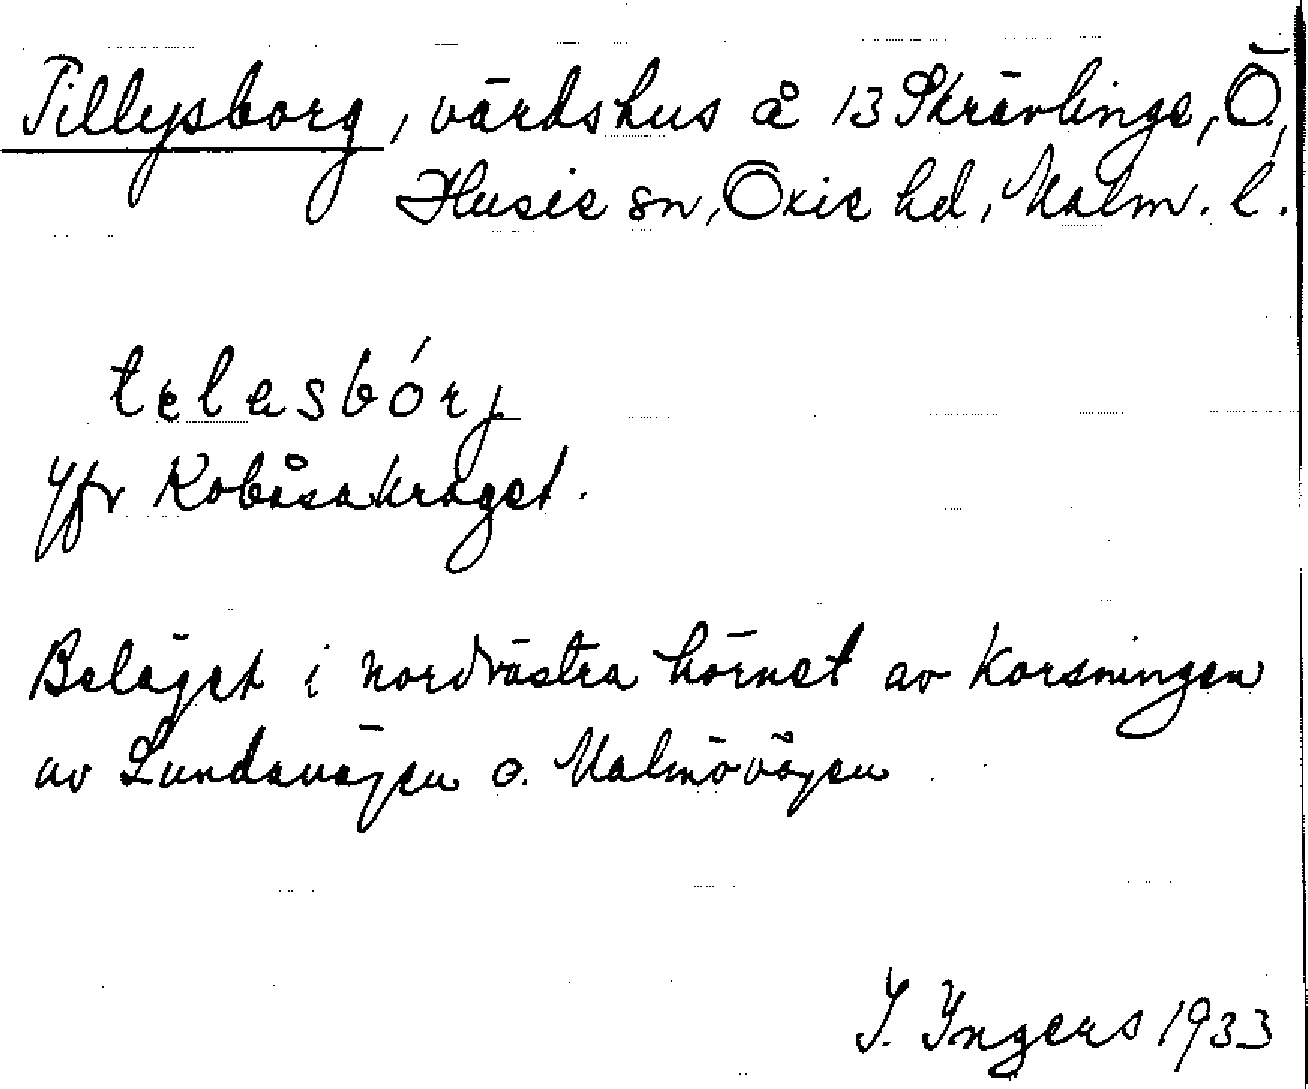 Tillysborg, värdshus å 13 Skrävlinge, Ö.,
Husie sn, Oxie hd, Malm. l.
telasbórj
Jfr Kobåsakroget.
Beläget i nordvästra hörnet av korsningen
av Lundavägen o. Malmövägen
I. Ingers 1933